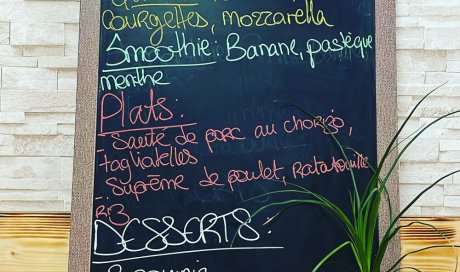 courgettes, mozzarella
Smoothie : Banane, pastèque
menthe
Plats :
- Sauté de porc au chorizo,
tagliatelles
- Suprême de poulet, Ratatouille
Riz
DESSERTS :